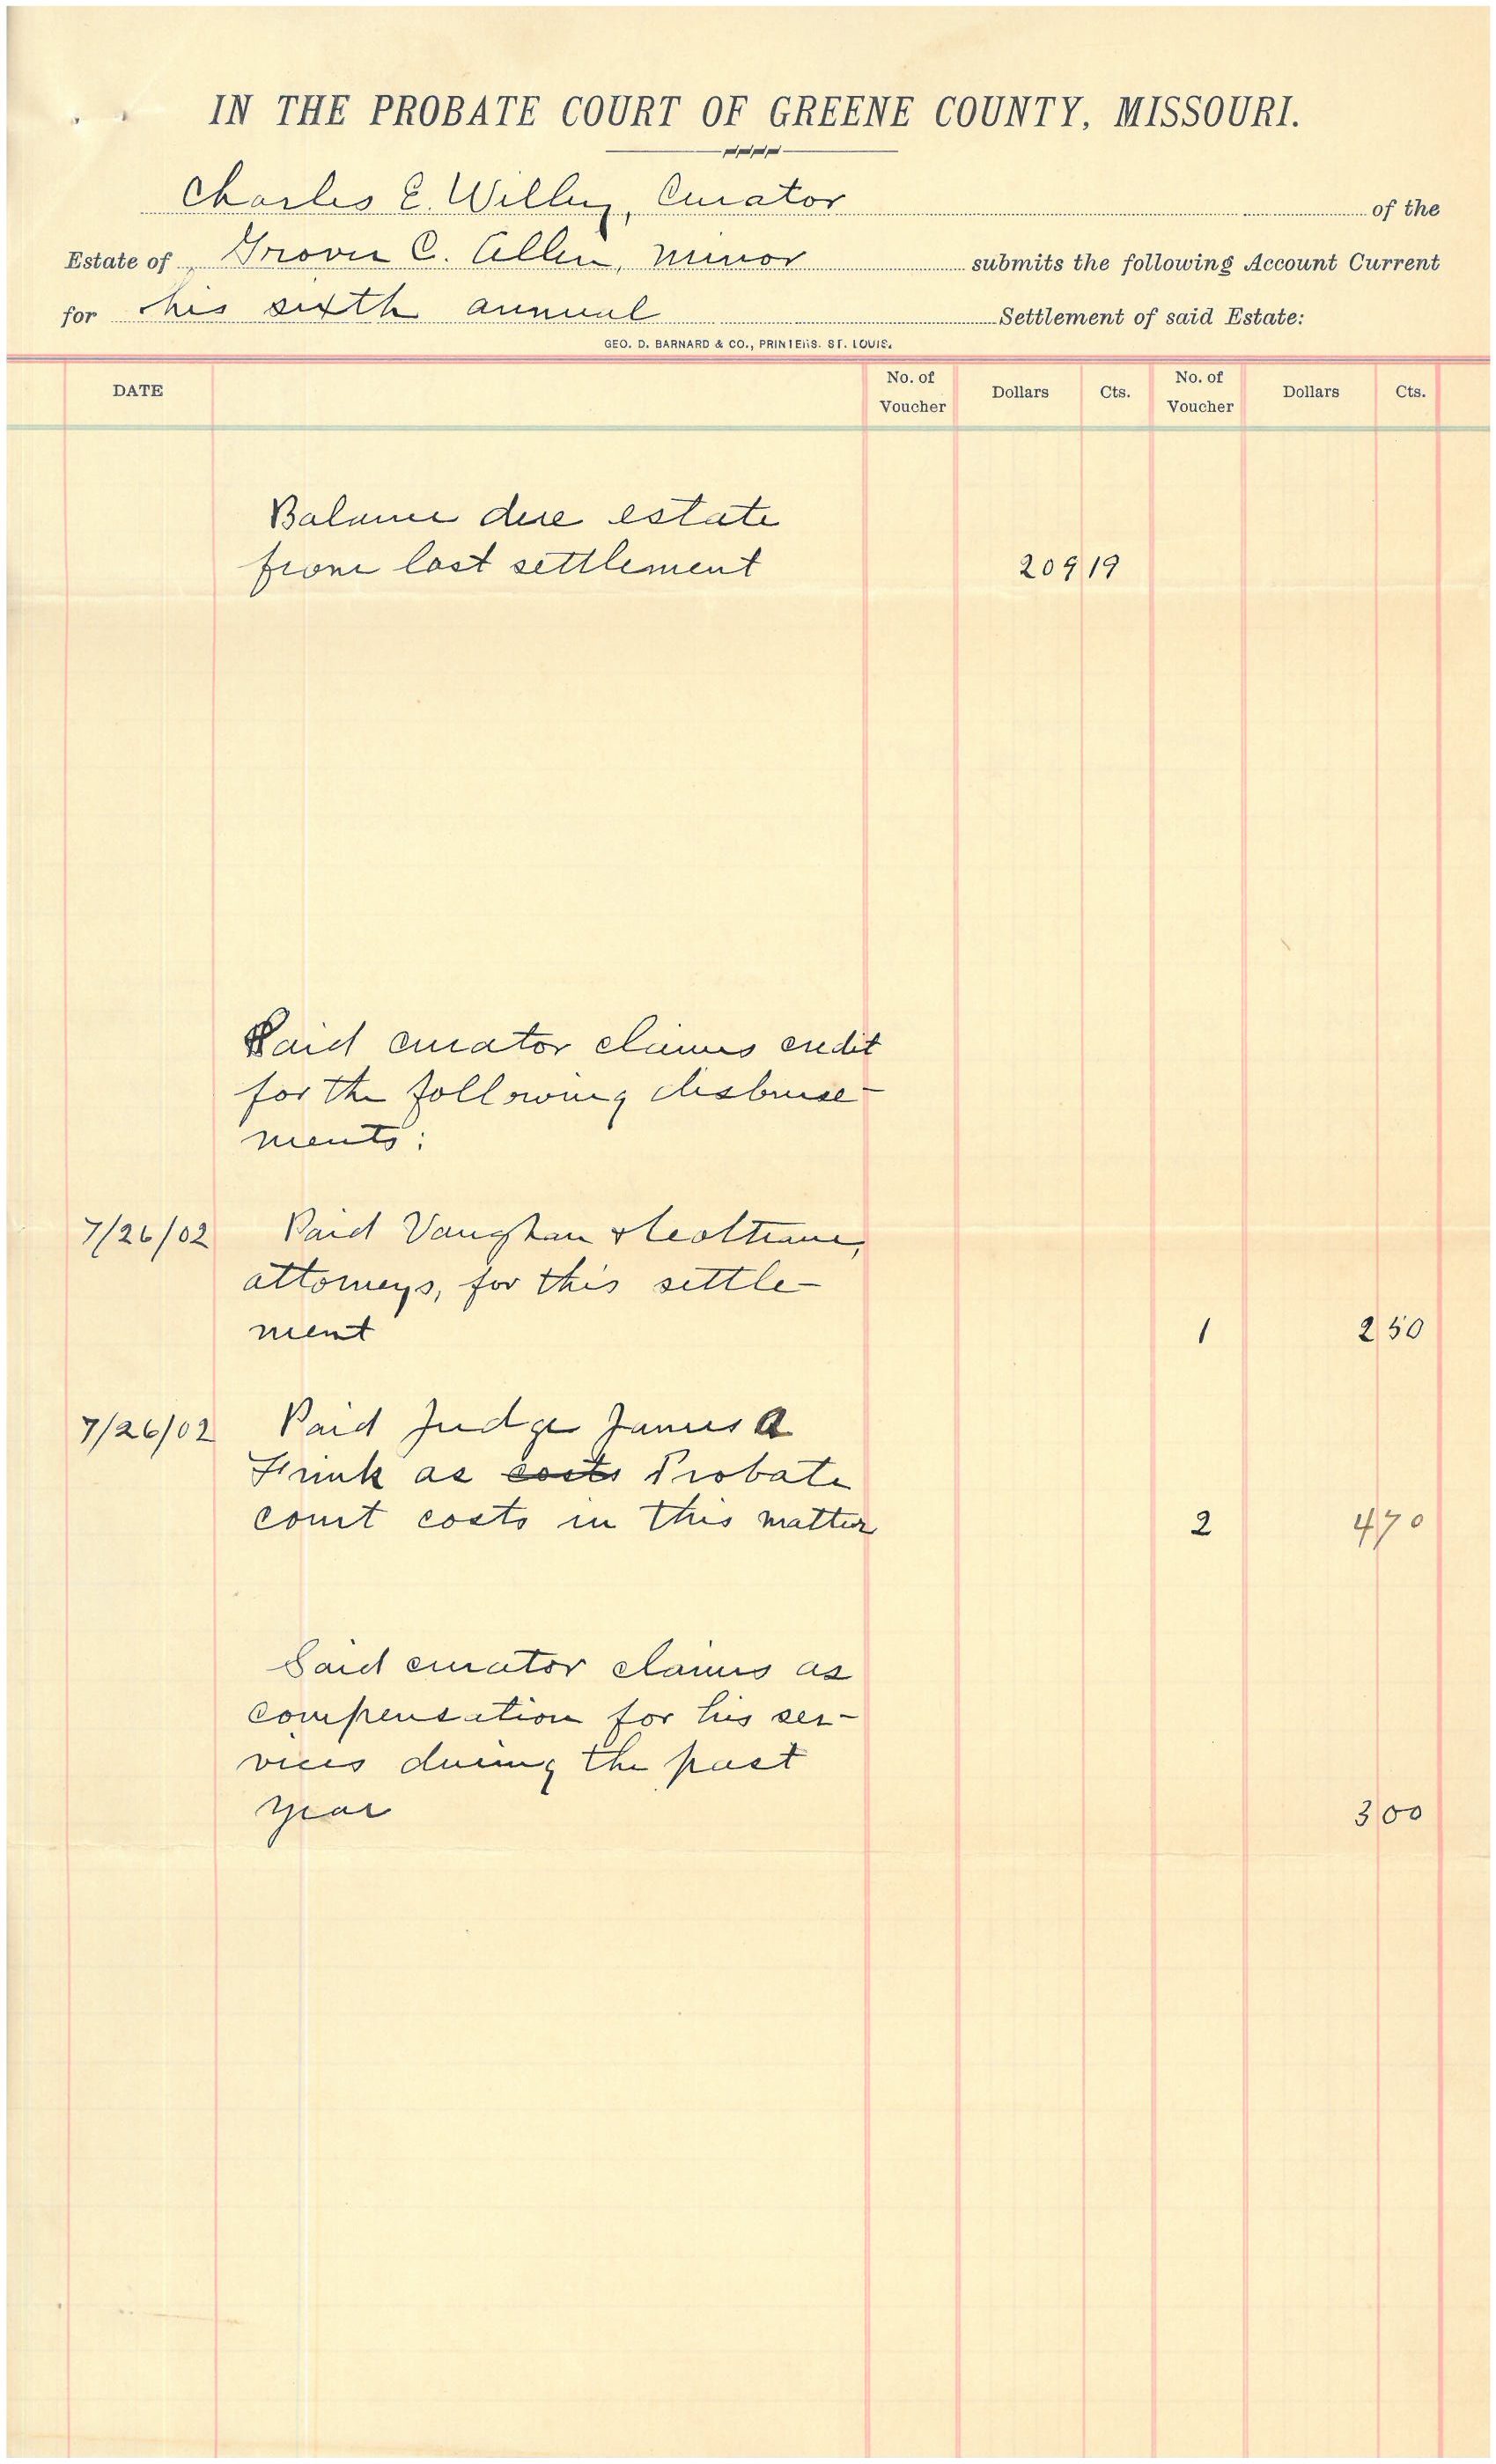 IN THE PROBATE COURT OF GREENE COUNTY, MISSOURI.
Charles E. Willey, Curator of the
Estate of Grover C. Allen, minor submits the following Account Current
for his sixth annual Settlement of said Estate:
GEO. D. BARNARD & CO., PRINTERS. ST. LOUIS.
DATE No. of Voucher Dollars Cts. No. of Voucher Dollars Cts.
Balance due estate
from last settlement 209 19
Said curator claims credit
for the following disburse-
ments:
7/26/02 Paid Vaughan & Coltrane,
attorneys, for this settle-
ment 1 2 50
7/26/02 Paid Judge James A
Frink as costs Probate
court costs in this matter 2 4 70
Said curator claims as
compensation for his ser-
vices during the past
year 3 00